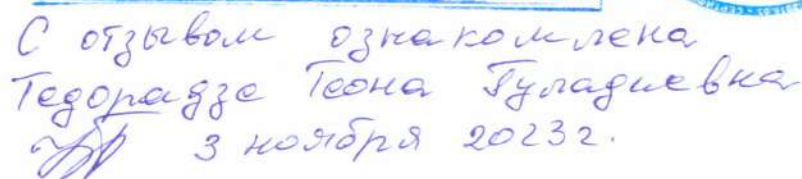 С отзывом ознакомлена
Тедорадзе Теона Гуладиевна
3 ноября 2023г.